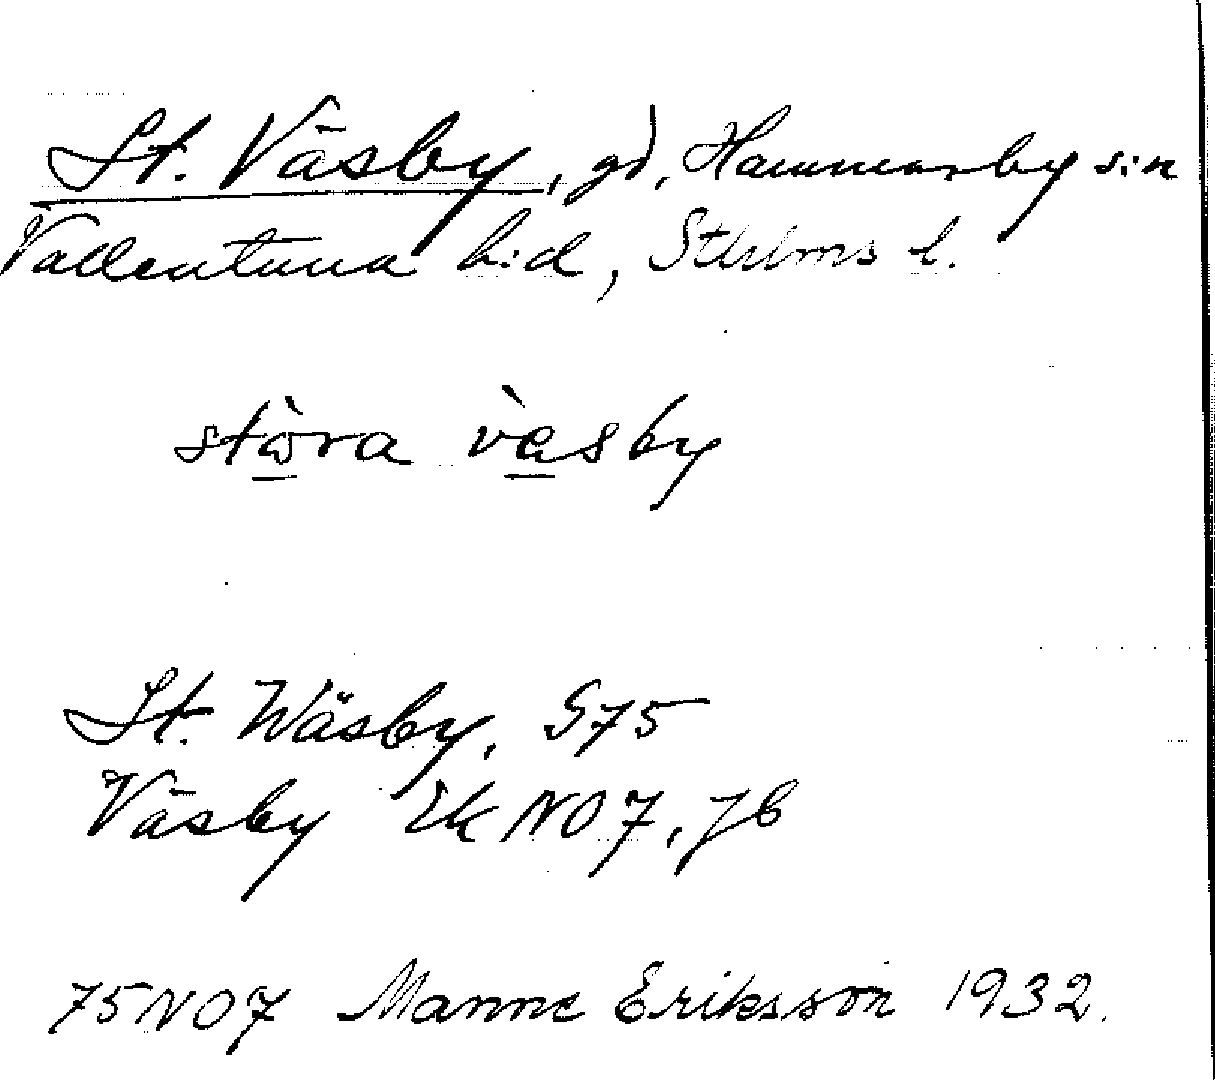 St. Väsby, gd, Hammarby s:n
Vallentuna h:d, Sthlms l.
stòra vàsby
St. Wäsby, G75
Väsby Ek NO7, Jb
75NO7 Manne Eriksson 1932.